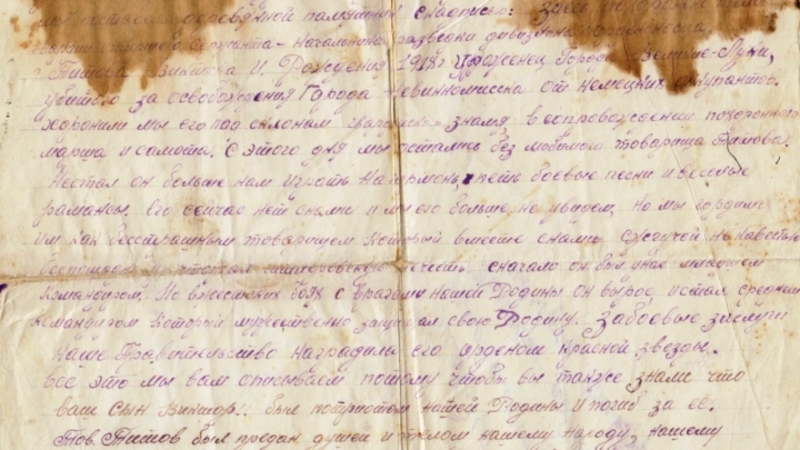 мы поставили деревянный памятник с надписью: Здесь похоронен
гвардии старшего Сержанта - начальника разведки дивизиона
Титова Виктора И. Рождения 1918г Уроженец Города Великие-Луки,
убитого за освобождения Города Невинномысска от немецких оккупантов.
хоронили мы его под склоном знамя в сопровождении похоронного
марша и салюта. С этого дня мы остались без любимого товарища Титова.
Нестал он больше нам играть На гормоне, петь боевые песни и веселые
рамансы. его сейчас нет снами и мы его больше не увидем, но мы гордимся
им как бесстрашным товарищем который вместе снами сжгучей ненавистью
беспощадно нечесть сначало он был унас младшем
командиром. Но вжестоких боях с врагами нашей Родины он вырос и стал средним
командиром который мужественно защищал свою Родину. Забоевые заслуги
наше Правительство наградила его орденом красной звезды.
все это мы вам описываем потому чтобы вы также знали что
ваш сын Виктор!. был потриотом нашей Родины и погиб за ее.
Тов. Титов был предан душей и телом нашему народу, нашему